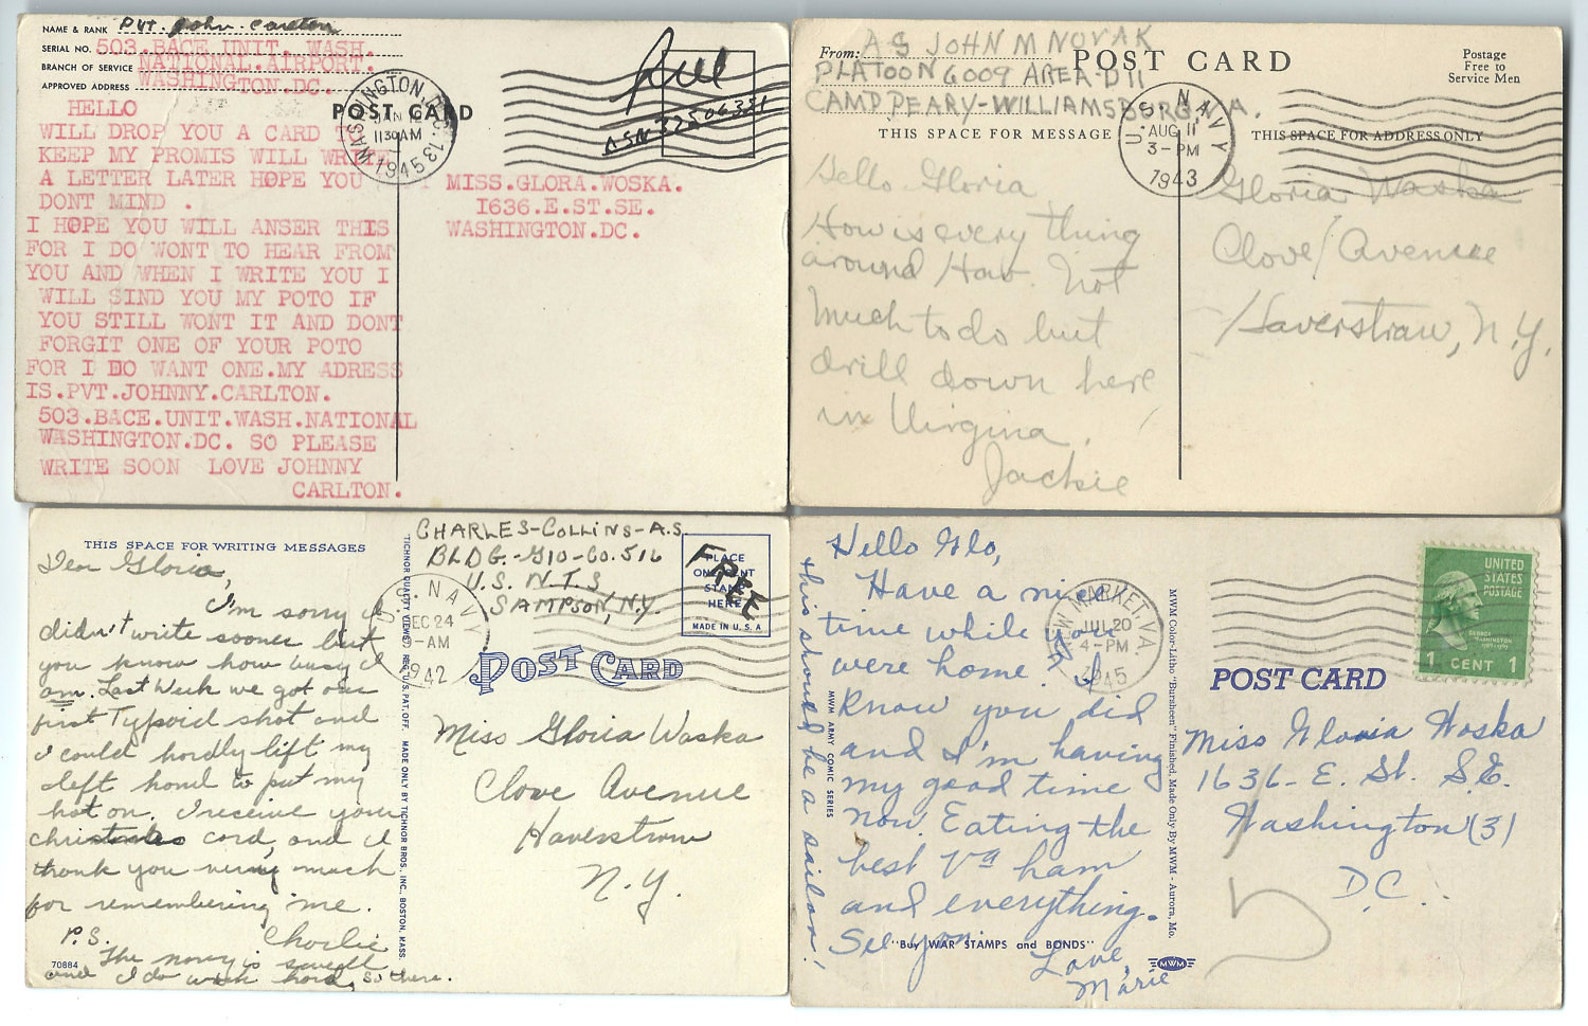 NAME & RANK Pvt. John. Carlton
SERIAL NO. 503.BACE UNIT. WASH.
BRANCH OF SERVICE NATIONAL.AIRPORT.
APPROVED ADDRESS WASHINGTON.DC.
HELLO
WILL DROP YOU A CARD T
KEEP MY PROMIS WILL WRITE
A LETTER LATER HOPE YOU
DONT MIND .
I HOPE YOU WILL ANSER THIS
FOR I DO WONT TO HEAR FROM
YOU AND WHEN I WRITE YOU I
WILL SIND YOU MY POTO IF
YOU STILL WONT IT AND DONT
FORGIT ONE OF YOUR POTO
FOR I DO WANT ONE.MY ADRESS
IS.PVT.JOHNNY.CARLTON.
503.BACE.UNIT.WASH.NATIONAL
WASHINGTON.DC. SO PLEASE
WRITE SOON LOVE JOHNNY
CARLTON.
POST CARD
WASHINGTON, D.C. 13
1130 AM
1945
ASN 32506351
MISS.GLORA.WOSKA.
1636.E.ST.SE.
WASHINGTON.DC.
From: A S JOHN M NOVAK
PLATOON 6009 AREA-D11
CAMP PEARY-WILLIAMSBURG VA.
POST CARD
Postage
Free to
Service Men
THIS SPACE FOR MESSAGE
THIS SPACE FOR ADDRESS ONLY
U. S. NAVY
AUG 11
3-PM
1943
Hello Gloria
How is every thing
around Haw. Not
much to do but
drill down here
in Virgina.
Jackie
Gloria Waska
Clove Avenue
Haverstraw, N.Y.
THIS SPACE FOR WRITING MESSAGES
Dear Gloria,
I'm sorry I
didn't write sooner but
you know how busy I
am. Last Week we got our
first Typoid shot and
I could hardly lift my
left hand to put my
hat on. I receive your
christmas card, and I
thank you very much
for remembering me.
Charlie
P.S.
The navy is swell
and I do work hard, so there.
70884
TICHNOR QUALITY VIEWS REG. U.S. PAT. OFF. MADE ONLY BY TICHNOR BROS., INC., BOSTON, MASS.
CHARLES-COLLINS-A.S.
BLDG.-G10-Co. 516
U.S. N.T.S
SAMPSON, N.Y.
U. S. NAVY
DEC 24
-AM
1942
PLACE
ONE CENT
STAMP
HERE
MADE IN U.S.A
FREE
POST CARD
Miss Gloria Waska
Clove Avenue
Haverstraw
N.Y.
Hello Glo,
Have a nice
time while you
were home? I
Know you did
and I'm having
my good time
now. Eating the
best Va ham
and everything.
See you.
Love,
Marie
this should be a sailor!
MWM ARMY COMIC SERIES
"Buy WAR STAMPS and BONDS"
MWM
MWM Color-Litho "Bursheen" Finished, Made Only By MWM - Aurora, Mo.
NEW MARKET, VA.
JUL 20
4-PM
1945
UNITED
STATES
POSTAGE
1 CENT 1
POST CARD
Miss Gloria Woska
1636-E. St. S.E.
Washington (3)
D.C.